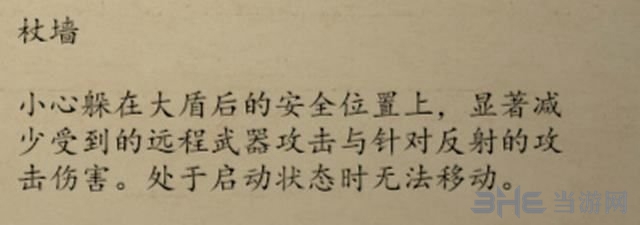 杖墙
小心躲在大盾后的安全位置上，显著减
少受到的远程武器攻击与针对反射的攻
击伤害。处于启动状态时无法移动。
3HE 当游网